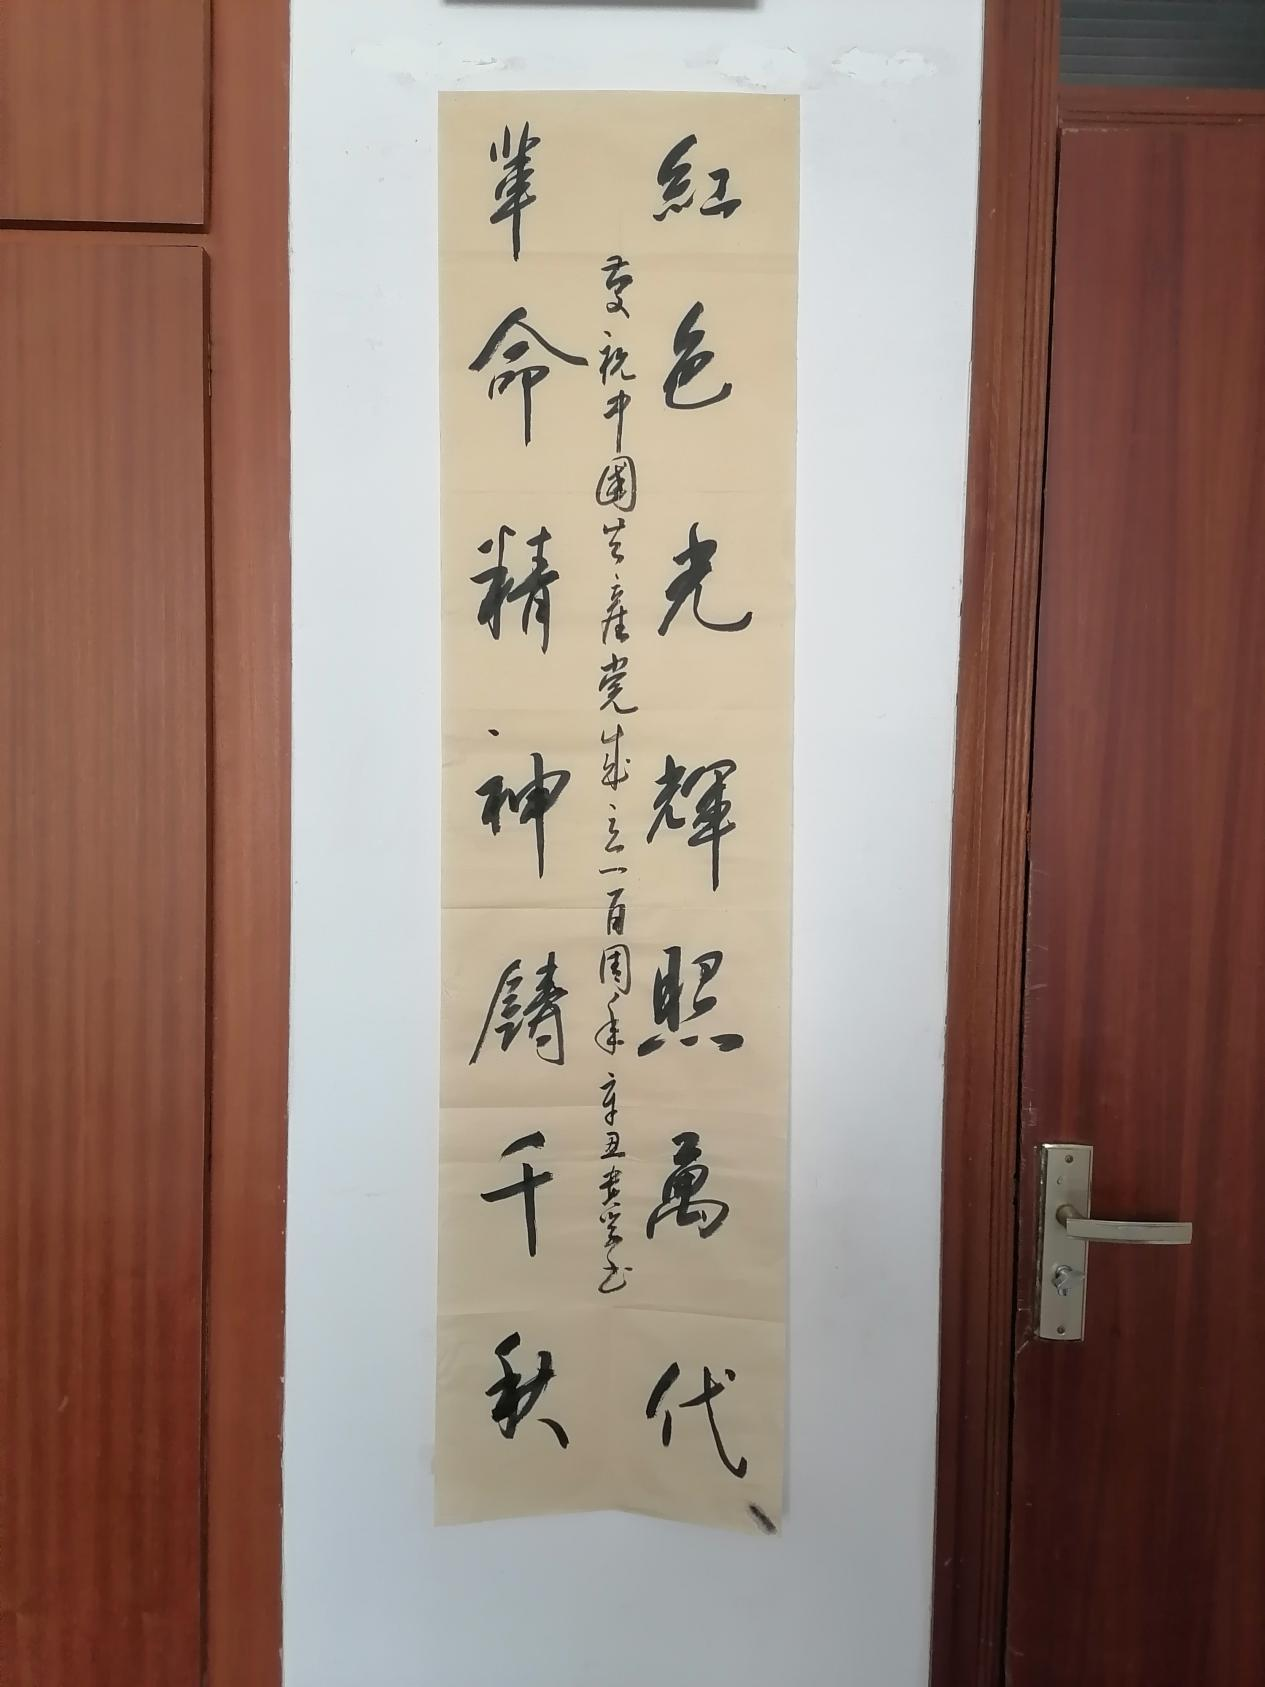 紅色光輝照萬代
革命精神鑄千秋
慶祝中國共產党成立一百周年 辛丑貴学书